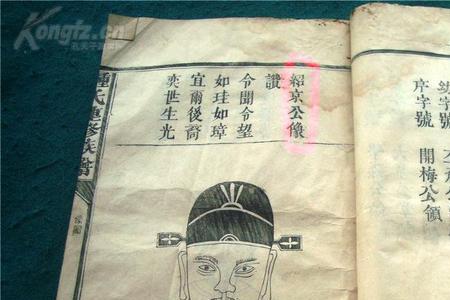 Kongfz.com
孔夫子旧书网
紹京公像
讚
令聞令望
如珪如璋
宜爾後裔
奕世生光
鍾氏重修族譜
像圖
開梅公領
序字號